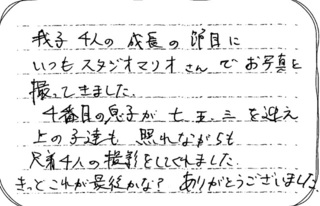 我子4人の成長の節目に
いつもスタジオマリオさんでお写真を
撮ってきました。
4番目の息子が七五三を迎え
上の子達も照れながらも
兄弟4人の撮影をしてくれました
きっとこれが最後かな? ありがとうございました